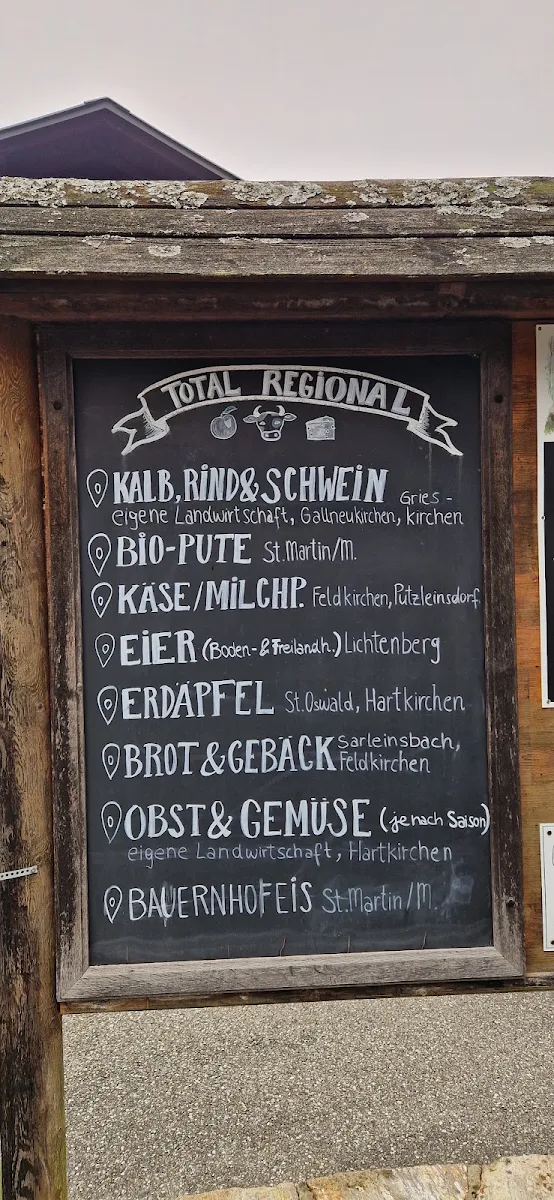 TOTAL REGIONAL
KALB, RIND & SCHWEIN Gries-
eigene Landwirtschaft, Gallneukirchen, kirchen
BIO-PUTE St. Martin/M.
KÄSE/MILCHP. Feldkirchen, Putzleinsdorf
EIER (Boden- & Freilandh.) Lichtenberg
ERDÄPFEL St. Oswald, Hartkirchen
BROT & GEBÄCK Sarleinsbach,
Feldkirchen
OBST & GEMÜSE (je nach Saison)
eigene Landwirtschaft, Hartkirchen
BAUERNHOFEIS St. Martin/M.